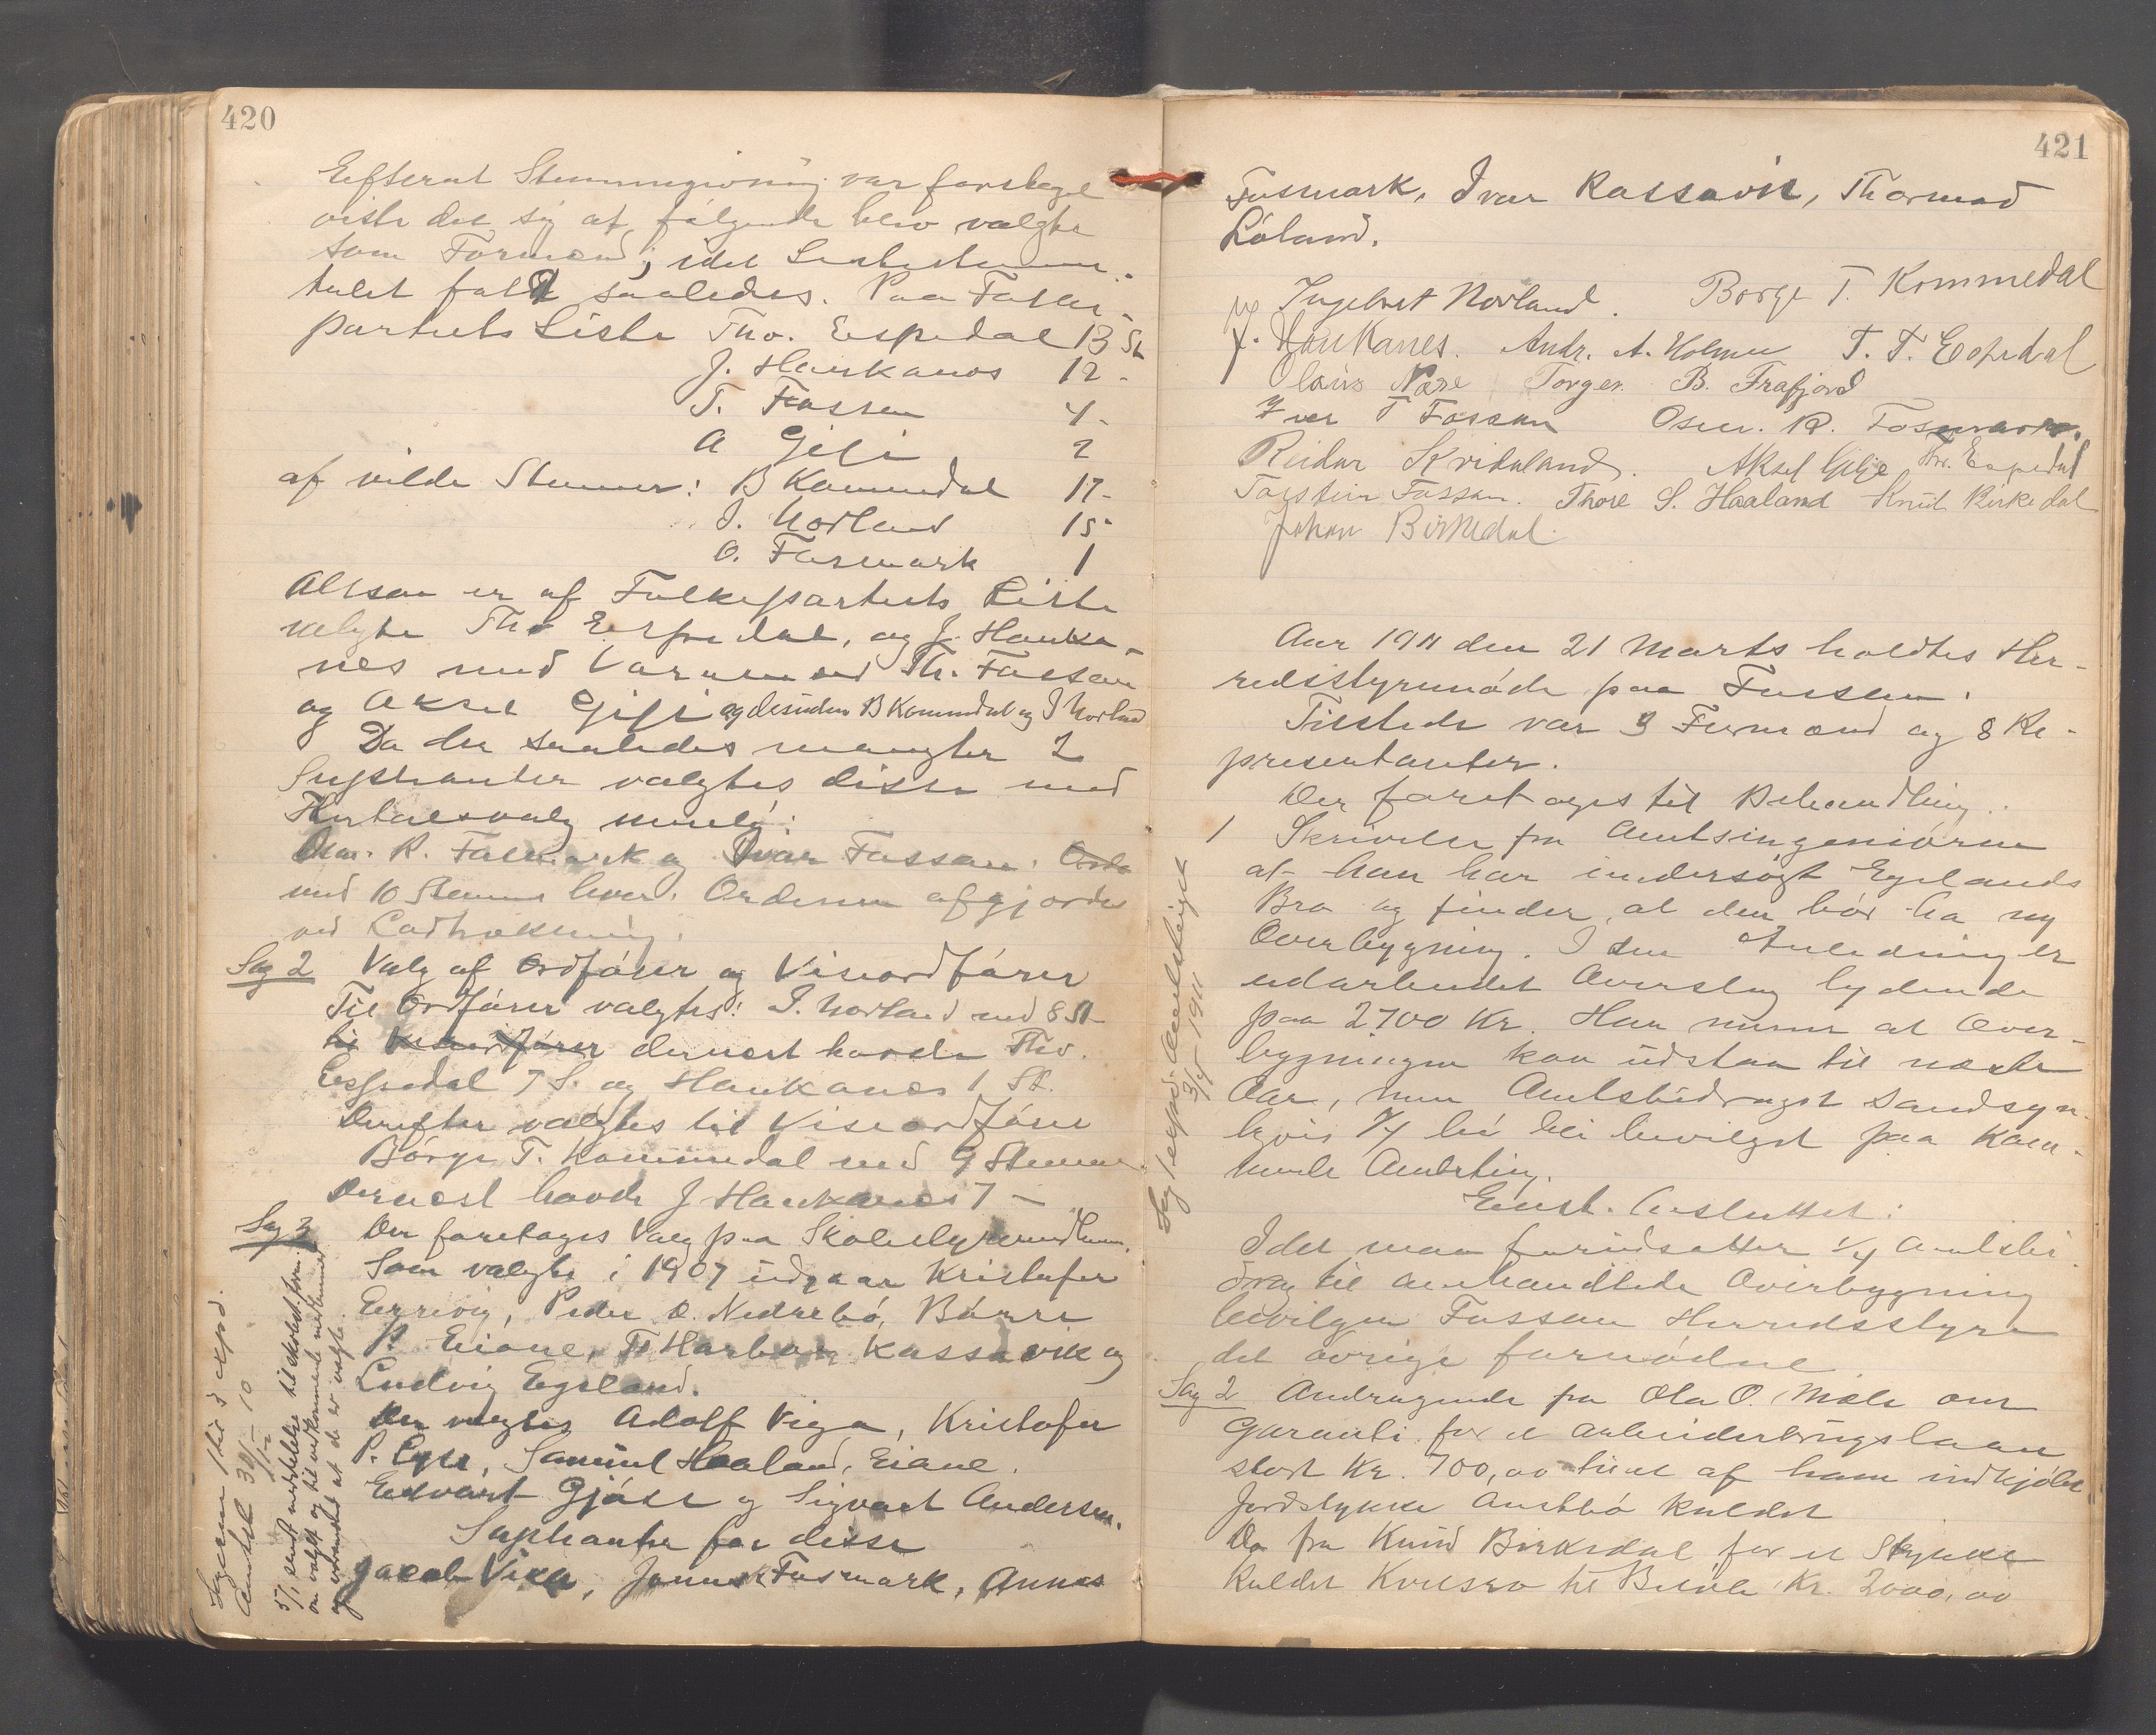 420
Efterat Stemmegivning var foretaget
viste det sig at følgende blev valgte
som Formænd; idet Listestemme-
tallet faldt saaledes. Paa Folke-
partiets Liste Tho. Espedal 13 St
J. Haukanes 12 -
T. Fossan 4 -
A Gilje 2
af vilde Stemmer: B Kommedal 17 -
I. Norland 15 -
O. Fosmark 1
Altsaa er af Folkepartiets Liste
valgte Tho Espedal, og J. Hauka-
nes med Varamænd Th. Fossan
og Aksel Gilje og desuden B Kommedal og I Norland
Da der saaledes mangler 2
Suppleanter valgtes disse med
Flertalsvalg nemlig:
Osm. R. Fosmark og Ivar Fossan.
med 10 Stemmer hver. Ordenen afgjordes
ved Lodtrækning.
Sag 2 Valg af Ordfører og Viseordfører
Til Ordfører valgtes: I. Norland med 8 St
til Viseordfører dernest havde Tho.
Espedal 7 S. og Haukanes 1 St.
Derefter valgtes til Viseordfører
Børge T. Kommedal med 9 Stemmer
Dernæst havde J Haukanes 7 -
Sag 3 Der foretages Valg paa Skolestyremedlem.
Som valgte i 1907 udgaar Kristofer
Eyrevig, Peder O. Nedrebø, Børre
P. Eiane, Th Harbo Kassavik og
Ludvig Egeland.
Der valgtes Adolf Viga, Kristofer
P. Eyre, Samuel Haaland, Eiane.
Edvart Gjøse og Sigvart Andersen.
Suplianter for disse
Jacob Vika, Jonas Fosmark, Annas
Sagerne hid 3 expd.
Amtet 31/12 - 10
5/1 sendt meddelelse til skolest. form.
om valget og til vedkommende medlemmer
og varamænd at de er valgte.
421
Fosmark, Ivar Kassavik, Thormod
Løland.
Ingebret Norland. Børge T. Kommedal
J. Haukanes. Andr. A. Holmen T. T. Espedal
Olaus Nære Torger B. Frafjord
Iver T Fossan Osm. R. Fosmark.
Reidar Kvidaland. Aksel Gilje Tho. Espedal
Torstein Fossan. Thore S. Haaland Knud Birkedal
Johan Birkedal.
Aar 1911 den 21 Marts holdtes Her-
redsstyremøde paa Fossan.
Tilstede var 3 Formænd og 8 Re-
presentanter.
Der foretages til Behandling.
1 Skrivelse fra Amtsingeniøren
at han har undersøgt Egelands
Bro og finder, at den bør ha ny
Overbygning. I den Anledning er
udarbeidet Overslag lydende
paa 2700 Kr. Han mener at Over-
bygningen kan udstaa til næste
Aar, men Amtsbidraget sandsyn-
ligvis 1/4 bør bli bevilget paa kom-
mende Amtsting.
Enst. Besluttet:
Idet man forudsætter 1/4 Amtsbi-
drag til omhandlede Overbygning
bevilger Fossan Herredsstyre
det øvrige fornødne
Sag 2 Andragende fra Ola O. Mæle om
Garanti for et Arbeiderbrugslaan
stort Kr. 700,00 til et af ham indkjøbt
Jordstykke Austbø kaldet
Do fra Knud Birkedal for et Stykke
kaldet Kvæsro til Beløb Kr. 2000,00
Sag 1 expd. Amtstinget
3/4 1911